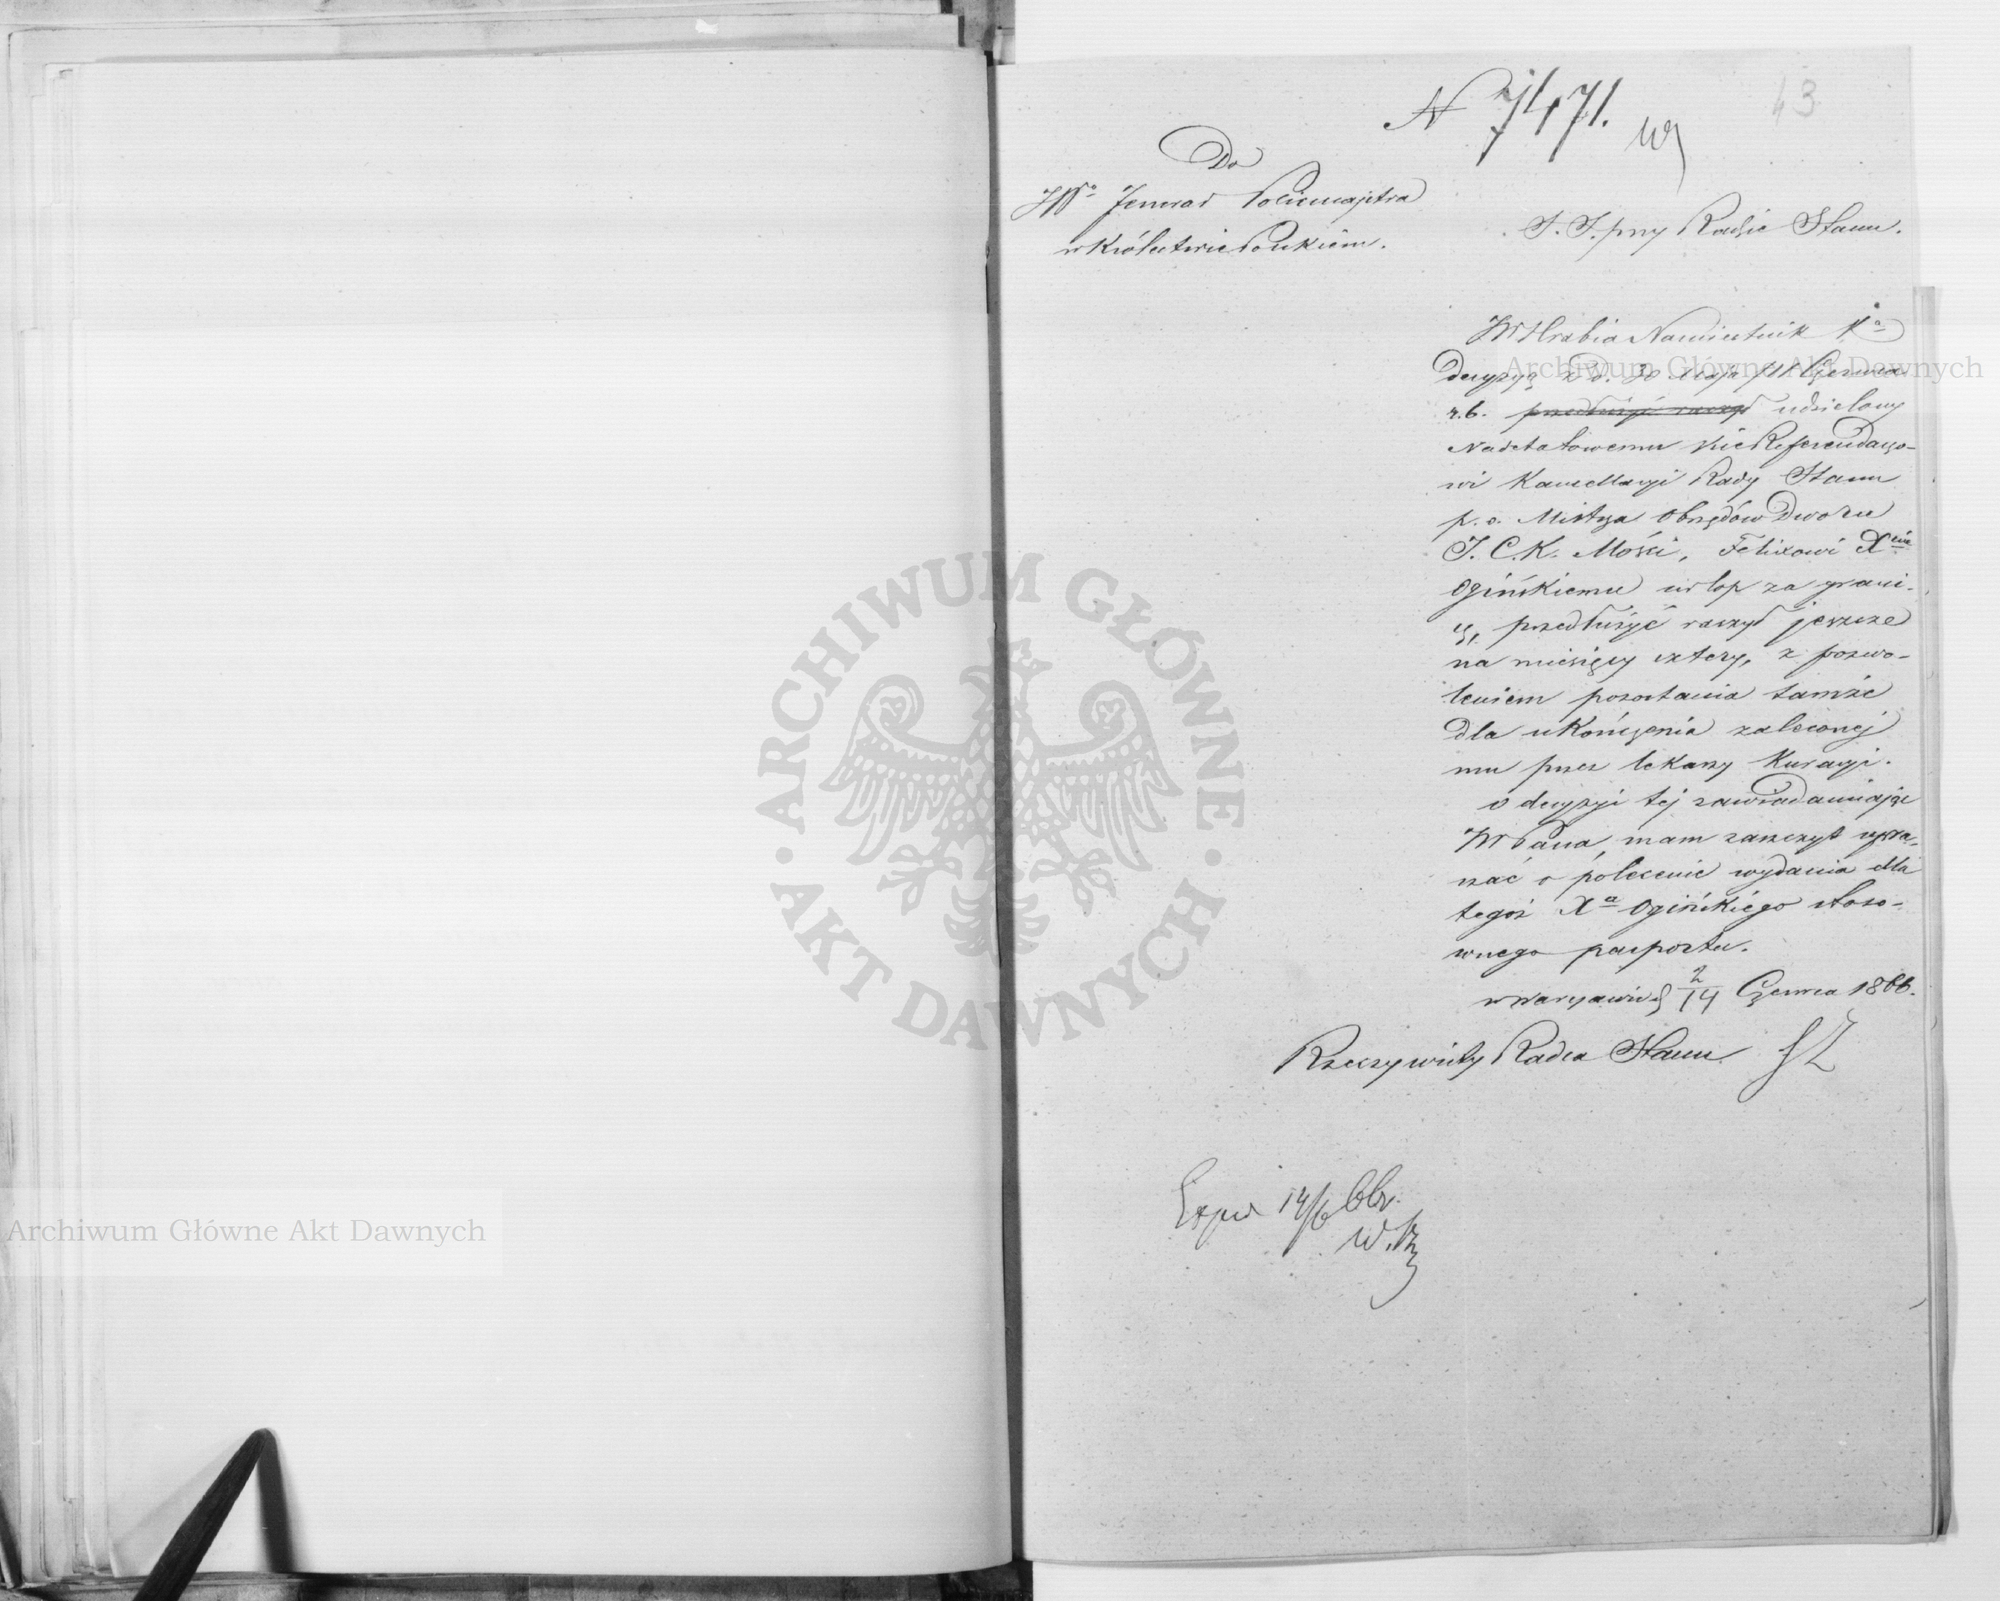 43
N 7471.
Do
JWo Jenerał Policmajstra
w Królestwie Polskiém.
S. S. przy Radzie Stanu.
JW Hrabia Namiestnik Ka
Decyzyą z d. 30 Maja /11 Czerwca
r.b. przedłużyć raczył udzielony
Nadetatowemu Vice Referendarzo-
wi Kancellaryi Rady Stanu
p. o. Mistrza Obrzędów Dworu
J. C. K. Mości, Felixowi Xciu
Ogińskiemu urlop za grani-
cę, przedłużyć raczył jeszcze
na miesięcy cztery, z pozwo-
leniem pozostania tamże
dla ukończenia zaleconej
mu przez lekarzy Kuracyi.
O decyzyi tej zawiadamiając
JW Pana, mam zaszczyt upra-
szać o polecenie wydania dla
tegoż Xa Ogińskiego stoso-
wnego pasportu.
w Warszawie d 2/14 Czerwca 1866.
Rzeczywisty Radca Stanu
Exped 14/6 66r.
Archiwum Główne Akt Dawnych
Archiwum Główne Akt Dawnych
ARCHIWUM GŁÓWNE
AKT DAWNYCH